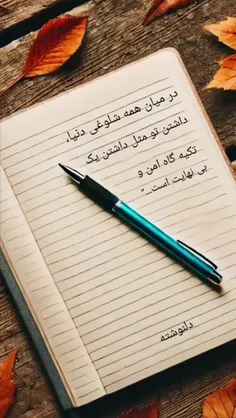 در میان همه شلوغی دنیا،
داشتن تو مثل داشتن یک
تکیه گاه امن و
بی نهایت است..."
دلنوشته